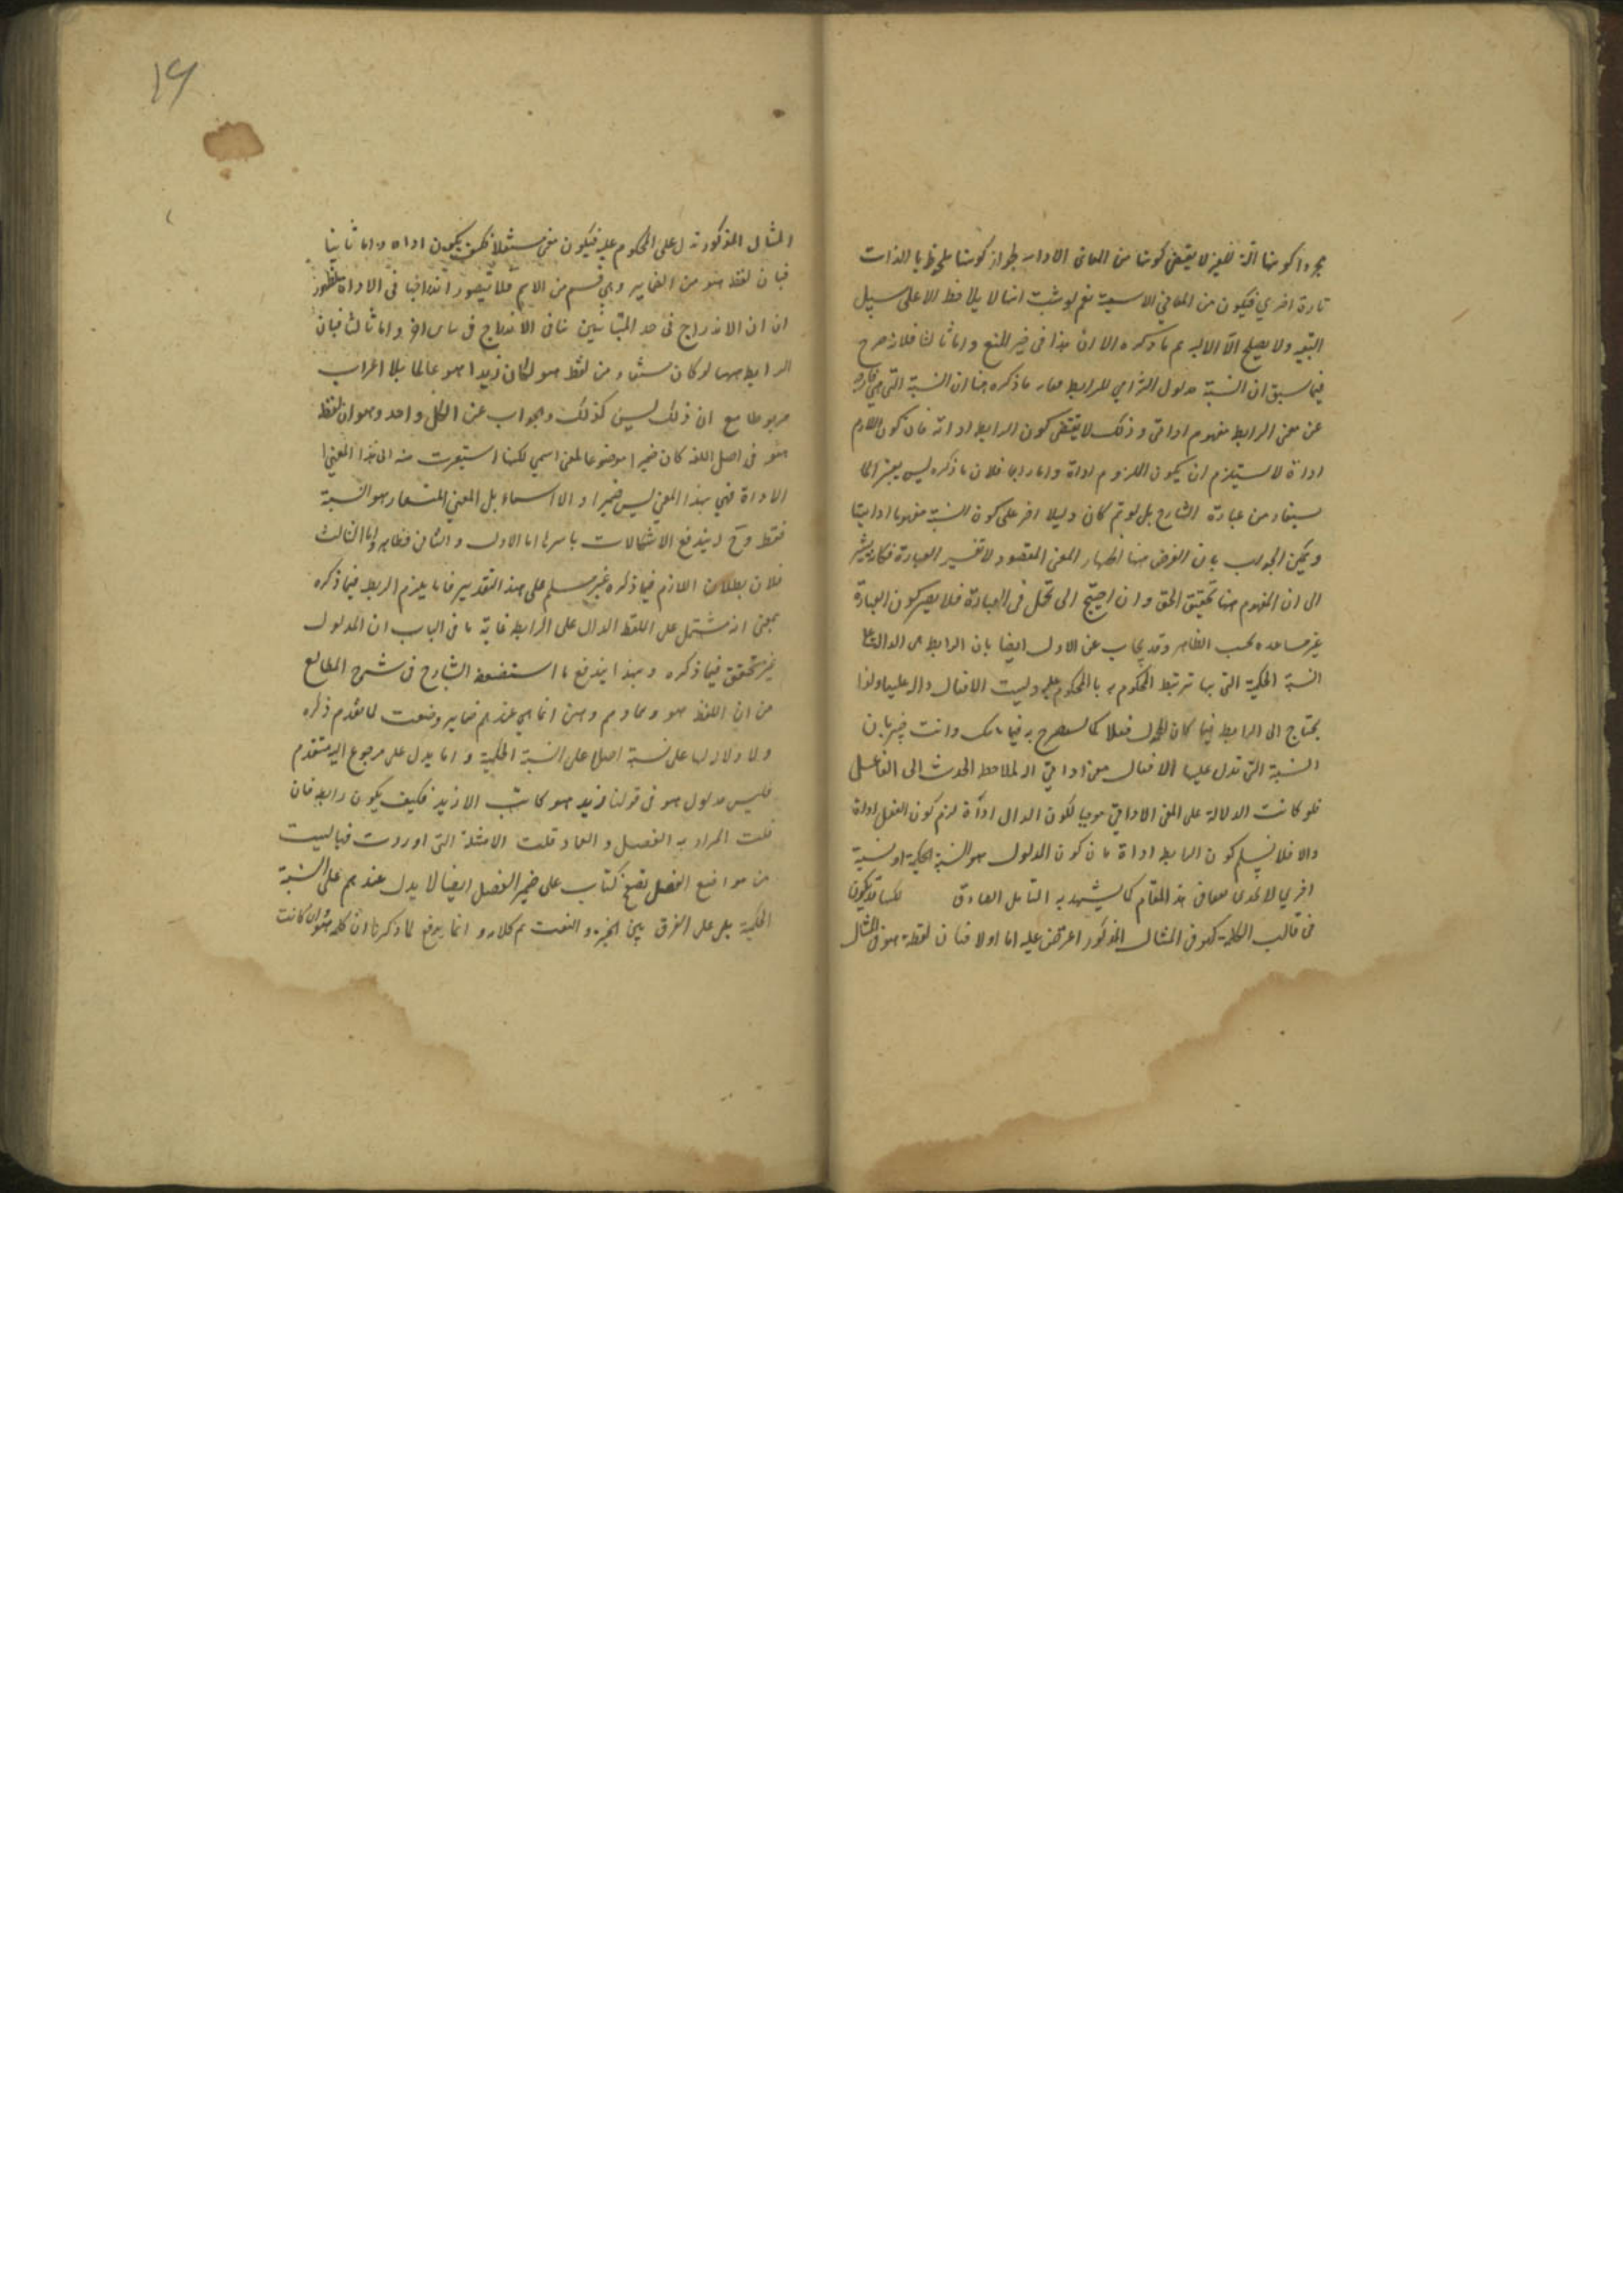 مجرد كونها آلة للغير لا يقتضي كونها من المعاني الاداتية لجواز كونها ملحوظة بالذات
تارة اخري فيكون من المعاني الاسمية نعم لو ثبت انها لا يلاحظ الا على سبيل
التبعية ولا يصلح الا لآلية تم ما ذكره الا ان هذا في حيز المنع واما ثالثا فلانه صرح
فيما سبق ان النسبة مدلول التزامي للرابطة ما ذكره هنا ان النسبة التي هي عبارة
عن معنى الرابط مفهوم اداتي وذلك لا يقتضي كون الرابط اداة فان كون اللازم
اداة لا يستلزم ان يكون الملزوم اداة واما رابعا فلان ما ذكره ليس
يستفاد من عبارة الشارح بل لو تم كان دليلا اخر على كون النسبة مفهوما اداتيا
ويمكن الجواب بان الغرض هنا اظهار المعنى المقصود لا تفسير العبارة فكانه يشير
الى ان المفهوم هنا تحقيق الحق وان احتيج الى تمحل في العبارة فلا يضر كون العبارة
غير مساعدة بحسب الظاهر وقد يجاب عن الاول ايضا بان الرابط هي الدالة على
النسبة الحكمية التي بها ترتبط المحكوم به بالمحكوم عليه وليست الافعال دالة عليها ولذا
يحتاج الى الرابط فيما كان المحمول فعلا كما سيصرح به وانت خبير بان
النسبة التي تدل عليها الافعال معنى اداتي آلة لملاحظة الحدث الى الفاعل
فلو كانت الدلالة على المعنى الاداتي موجبا لكون الدال اداة لزم كون الفعل اداة
والا فلا يسلم كون الرابط اداة فان كون المدلول هو النسبة الحكمية او نسبة
اخري لا يجدي هذا المقام كما يشهد به التامل الصادق لكنها قد يكون
في قالب الكلمة كهو في المثال المذكور اعترض عليه اما اولا فبان لفظة هو في المثال
المثال المذكور تدل على المحكوم عليه فيكون معنى مستقلا فكيف يكون اداة واما ثانيا
فبان لفظ هو من الضماير وهي قسم من الاسم فلا يتصور اندراجها في الاداة لظهور
ان الاندراج في احد المتباينين ينافي الاندراج في اخر واما ثالثا فبان
الرابط ههنا لو كان مستفادا من لفظ هو لكان زيد هو عالما بلا اعراب
مربوطا مع ان ذلك ليس كذلك والجواب عن الكل واحد وهو ان لفظ
هو في اصل اللغة كان ضميرا موضوعا لمعنى اسمي لكنها استعيرت منه الى هذا المعنى
الاداة فهي بهذا المعنى ليس ضميرا ولا اسماء بل المعنى المستعار هو النسبة
فقط وح يندفع الاشكالات باسرها اما الاول والثاني فظاهر واما الثالث
فلان بطلان اللازم فيما ذكره غير مسلم على هذا التقدير فانا يلزم الربط فيما ذكره
بمعنى انه مشتمل على اللفظ الدال على الرابط غاية ما في الباب ان المدلول
غير متحقق فيما ذكره وبهذا يندفع ما استضعفه الشارح في شرح المطالع
من ان اللفظ هو وهما وهم وهن انما هي عندهم ضماير وضعت لما تقدم ذكره
ولا دلالة لها على نسبة اصلا على النسبة الحكمية وانما يدل على مرجوع اليه متقدم
فليس مدلول هو في قولنا زيد هو كاتب الا زيد فكيف يكون رابطا فان
قلت المراد به الفصل والعماد قلت الامثلة التي اوردت فيها ليست
من مواضع الفصل على ضمير الفصل ايضا لا يدل عندهم على النسبة
الحكمية بل على الفرق بين الخبر والنعت تم كلامه وانما يرفع لما ذكرنا ان كلمة هو وان كانت